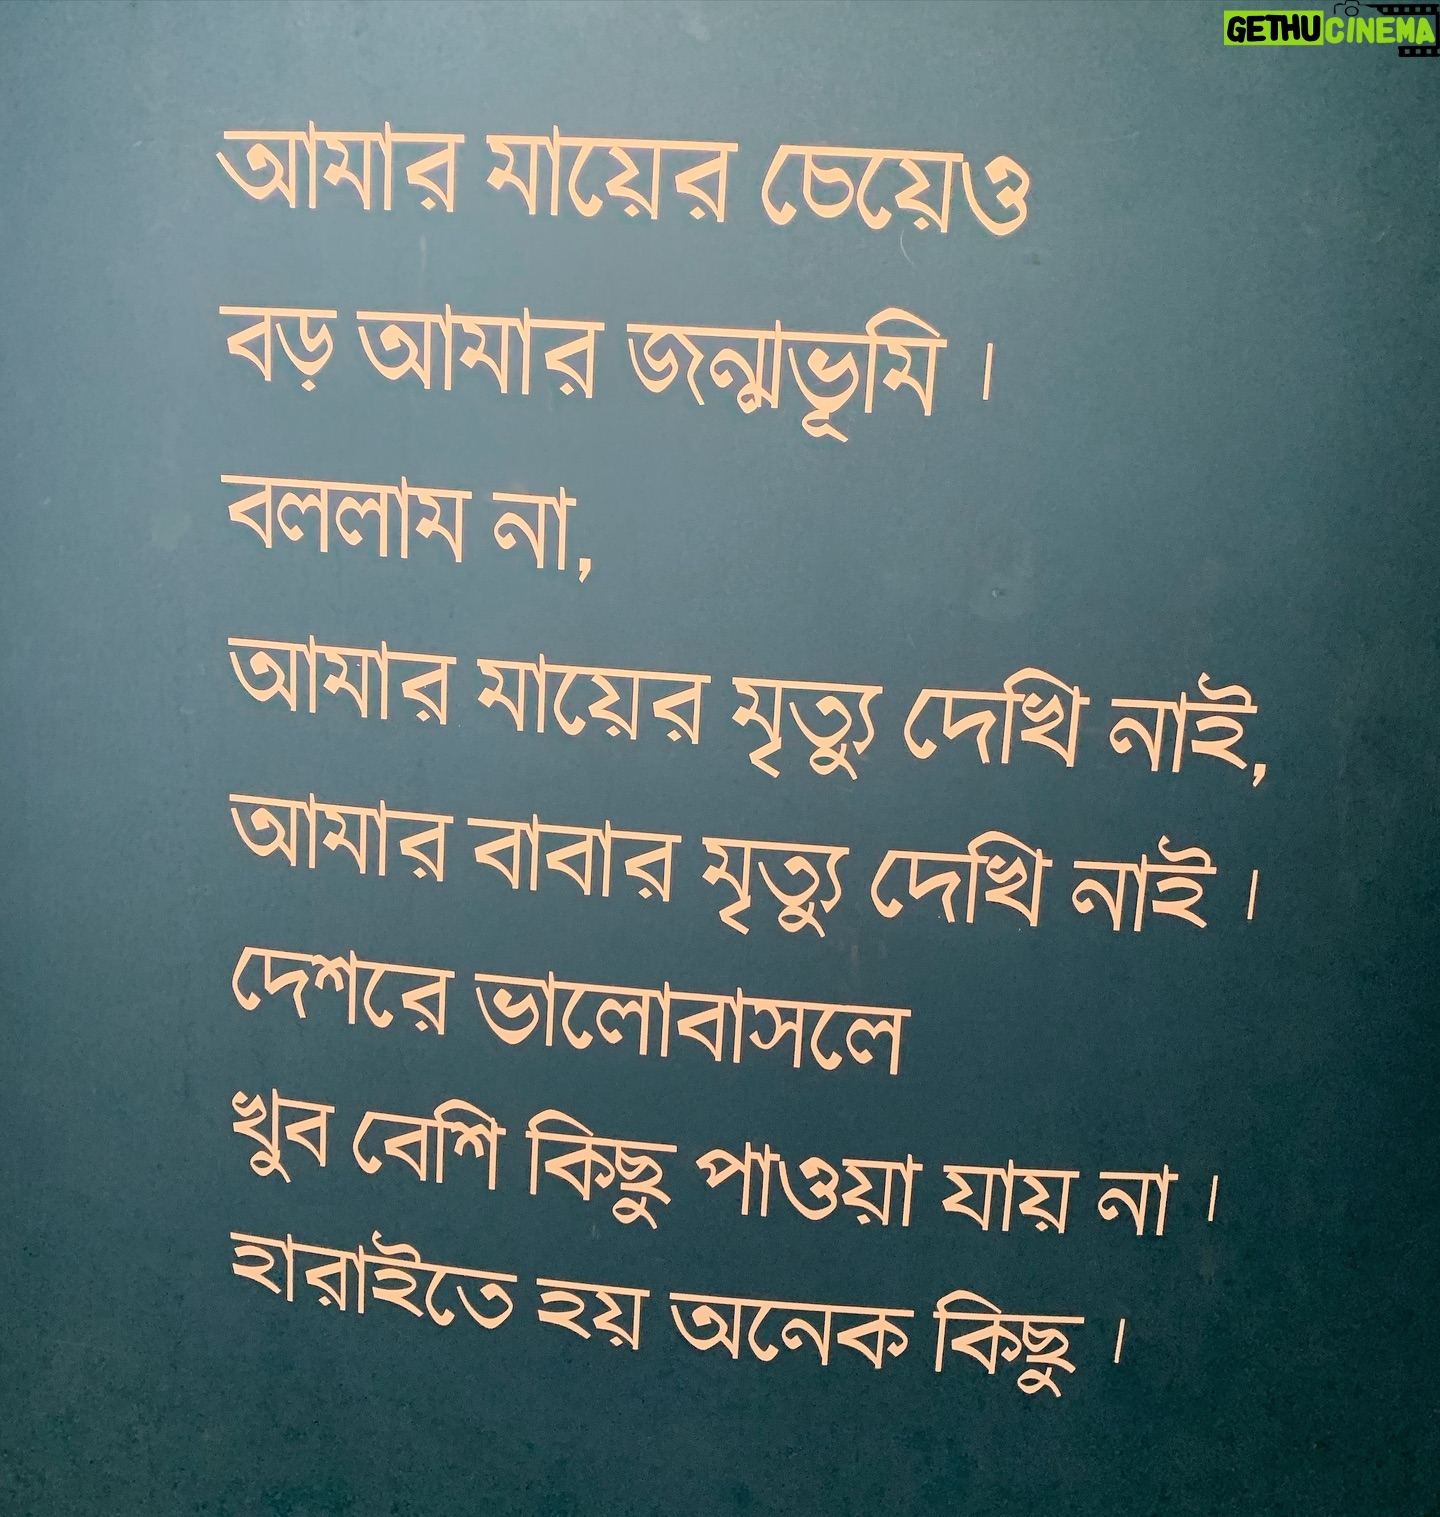 GETHUCINEMA
আমার মায়ের চেয়েও
বড় আমার জন্মভূমি ।
বললাম না,
আমার মায়ের মৃত্যু দেখি নাই,
আমার বাবার মৃত্যু দেখি নাই ।
দেশরে ভালোবাসলে
খুব বেশি কিছু পাওয়া যায় না ।
হারাইতে হয় অনেক কিছু ।